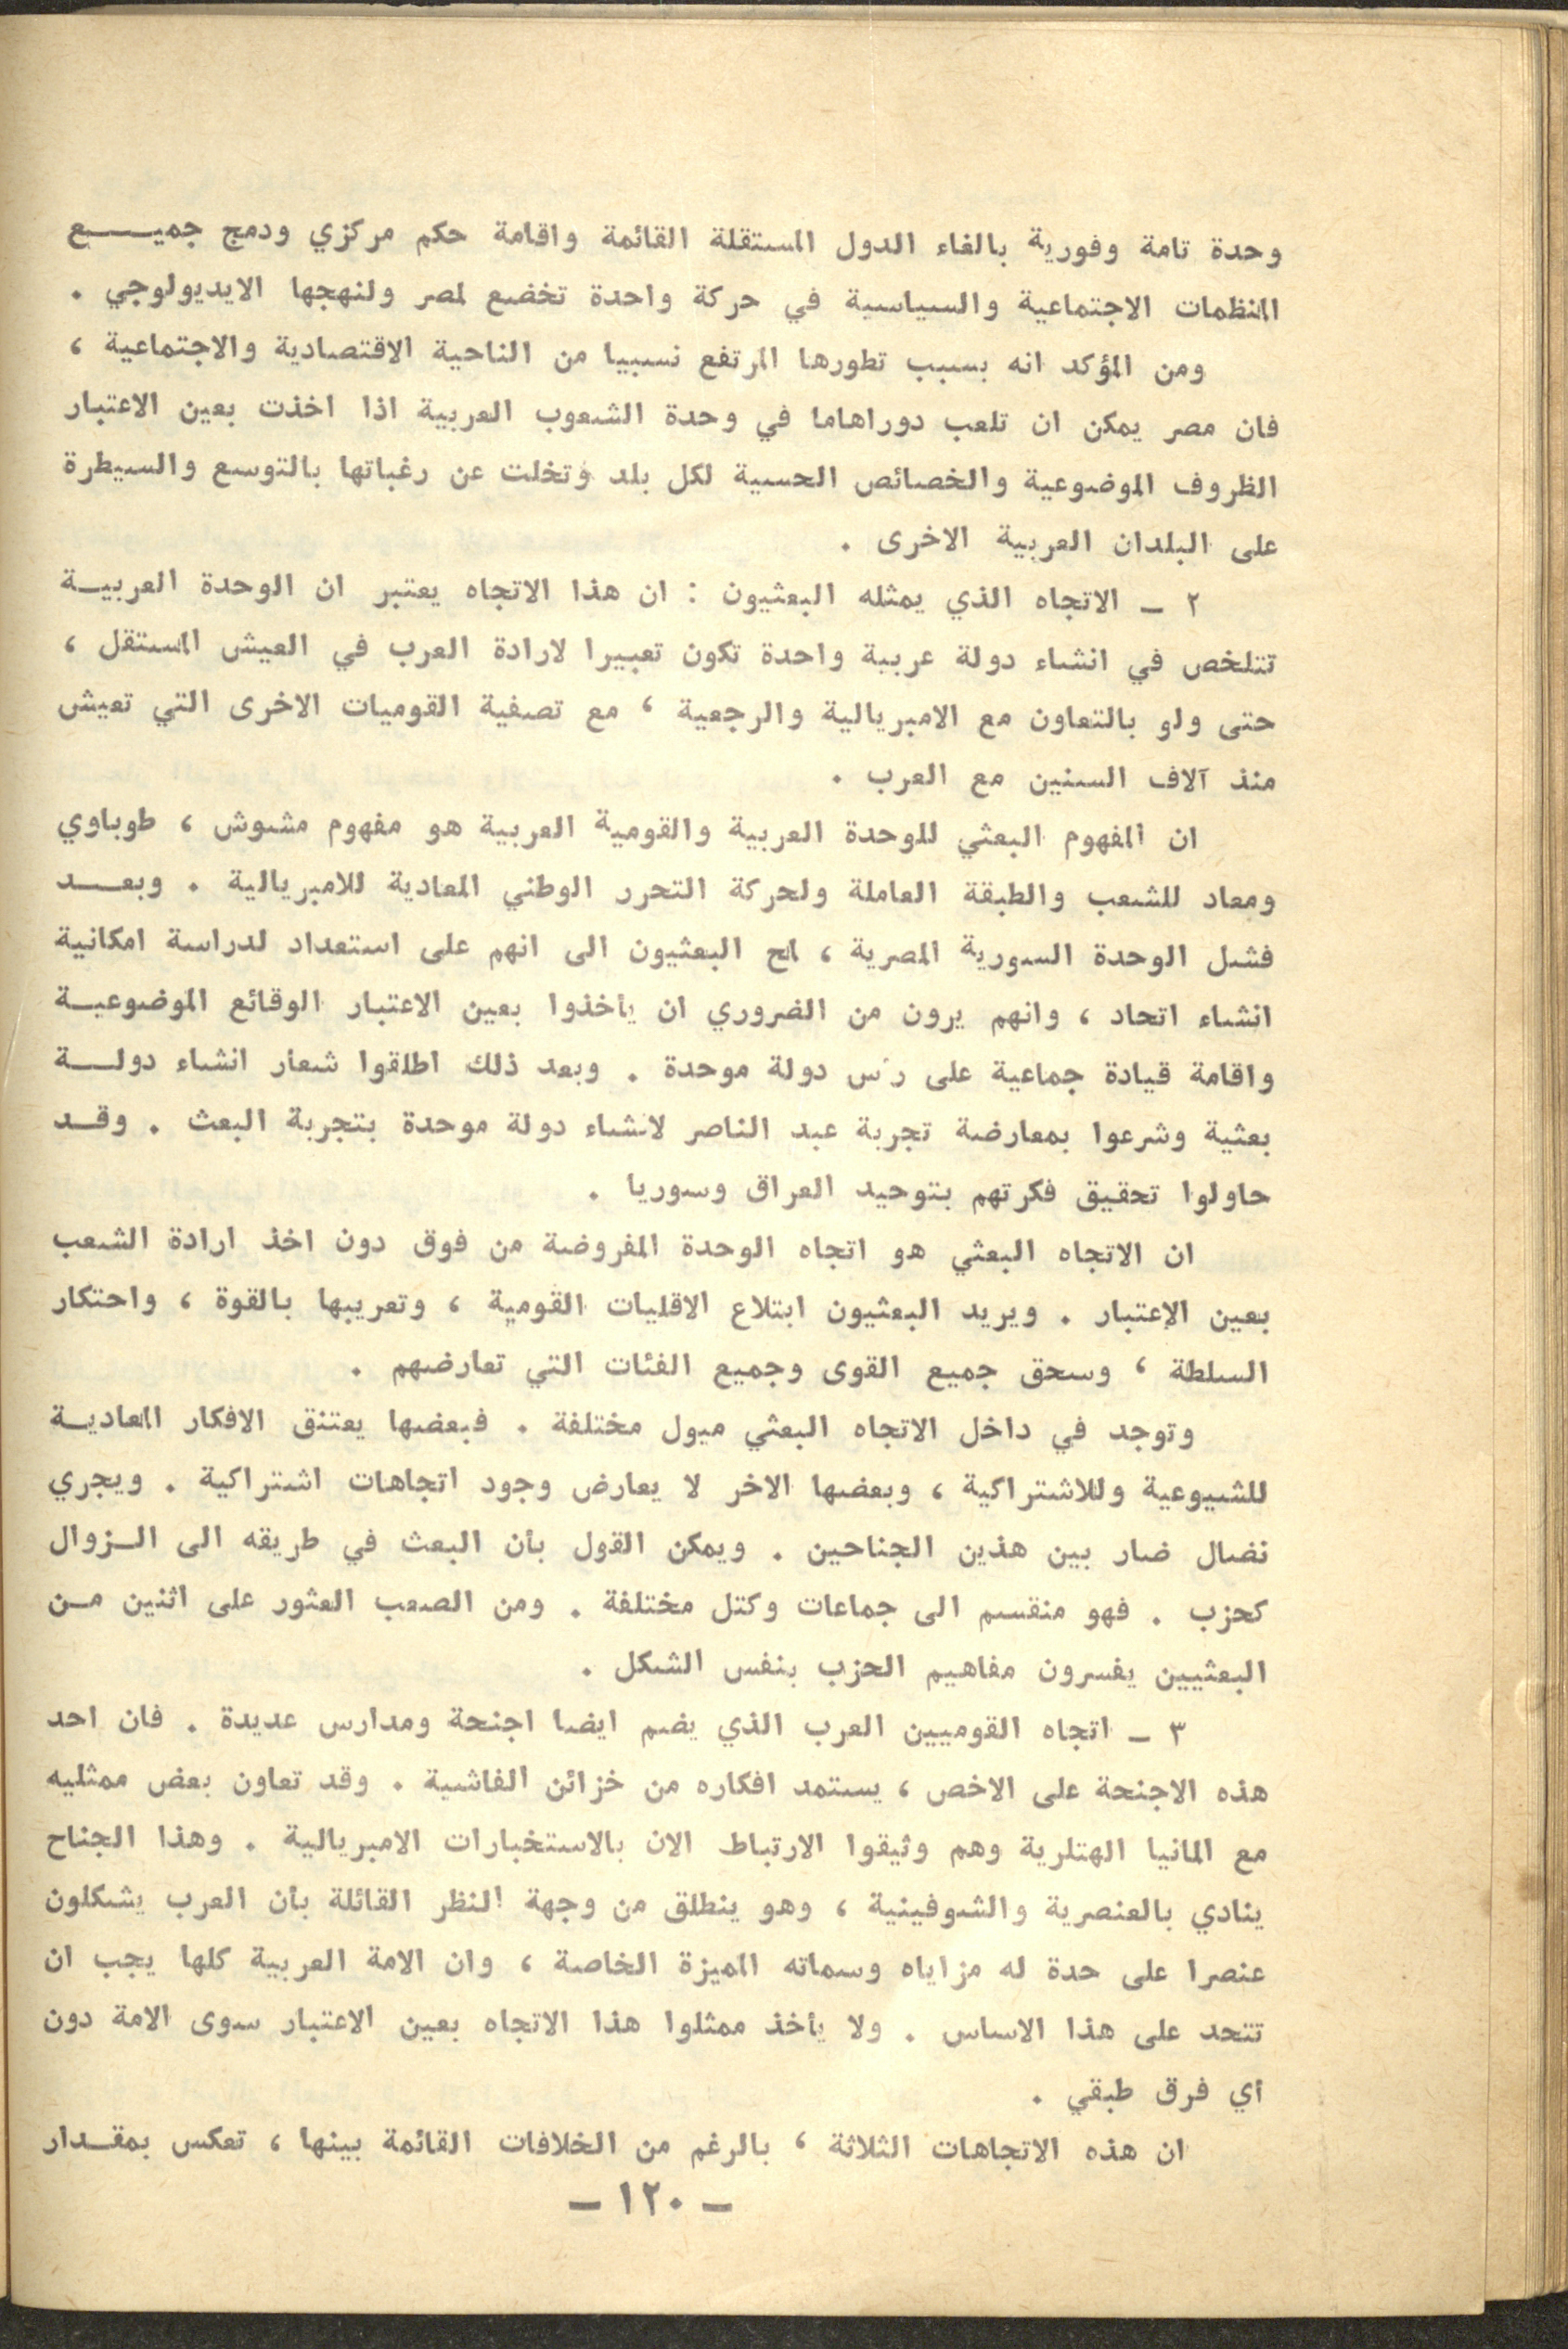 وحدة تامة وفورية بالغاء الدول المستقلة القائمة واقامة حكم مركزي ودمج جميع
المنظمات الاجتماعية والسياسية في حركة واحدة تخضع لمصر ولنهجها الايديولوجي .
ومن المؤكد انه بسبب تطورها المرتفع نسبيا من الناحية الاقتصادية والاجتماعية ،
فان مصر يمكن ان تلعب دوراهاما في وحدة الشعوب العربية اذا اخذت بعين الاعتبار
الظروف الموضوعية والخصائص الحسية لكل بلد وتخلت عن رغباتها بالتوسع والسيطرة
على البلدان العربية الاخرى .
٢ ـ الاتجاه الذي يمثله البعثيون : ان هذا الاتجاه يعتبر ان الوحدة العربية
تتلخص في انشاء دولة عربية واحدة تكون تعبيرا لارادة العرب في العيش المستقل ،
حتى ولو بالتعاون مع الامبريالية والرجعية ، مع تصفية القوميات الاخرى التي تعيش
منذ آلاف السنين مع العرب .
ان المفهوم البعثي للوحدة العربية والقومية العربية هو مفهوم مشوش ، طوباوي
ومعاد للشعب والطبقة العاملة ولحركة التحرر الوطني المعادية للامبريالية . وبعد
فشل الوحدة السورية المصرية ، لمح البعثيون الى انهم على استعداد لدراسة امكانية
انشاء اتحاد ، وانهم يرون من الضروري ان يأخذوا بعين الاعتبار الوقائع الموضوعية
واقامة قيادة جماعية على رأس دولة موحدة . وبعد ذلك اطلقوا شعار انشاء دولة
بعثية وشرعوا بمعارضة تجربة عبد الناصر لانشاء دولة موحدة بتجربة البعث . وقد
حاولوا تحقيق فكرتهم بتوحيد العراق وسوريا .
ان الاتجاه البعثي هو اتجاه الوحدة المفروضة من فوق دون اخذ ارادة الشعب
بعين الإعتبار . ويريد البعثيون ابتلاع الاقليات القومية ، وتعريبها بالقوة ، واحتكار
السلطة ، وسحق جميع القوى وجميع الفئات التي تعارضهم .
وتوجد في داخل الاتجاه البعثي ميول مختلفة . فبعضها يعتنق الافكار المعادية
للشيوعية وللاشتراكية ، وبعضها الاخر لا يعارض وجود اتجاهات اشتراكية . ويجري
نضال ضار بين هذين الجناحين . ويمكن القول بأن البعث في طريقه الى الزوال
كحزب . فهو منقسم الى جماعات وكتل مختلفة . ومن الصعب العثور على اثنين من
البعثيين يفسرون مفاهيم الحزب بنفس الشكل .
٣ ـ اتجاه القوميين العرب الذي يضم ايضا اجنحة ومدارس عديدة . فان احد
هذه الاجنحة على الاخص ، يستمد افكاره من خزائن الفاشية . وقد تعاون بعض ممثليه
مع المانيا الهتلرية وهم وثيقوا الارتباط الان بالاستخبارات الامبريالية . وهذا الجناح
ينادي بالعنصرية والشوفينية ، وهو ينطلق من وجهة النظر القائلة بأن العرب يشكلون
عنصرا على حدة له مزاياه وسماته المميزة الخاصة ، وان الامة العربية كلها يجب ان
تتحد على هذا الاساس . ولا يأخذ ممثلوا هذا الاتجاه بعين الاعتبار سوى الامة دون
أي فرق طبقي .
ان هذه الاتجاهات الثلاثة ، بالرغم من الخلافات القائمة بينها ، تعكس بمقدار
ـ ١٢٠ ـ